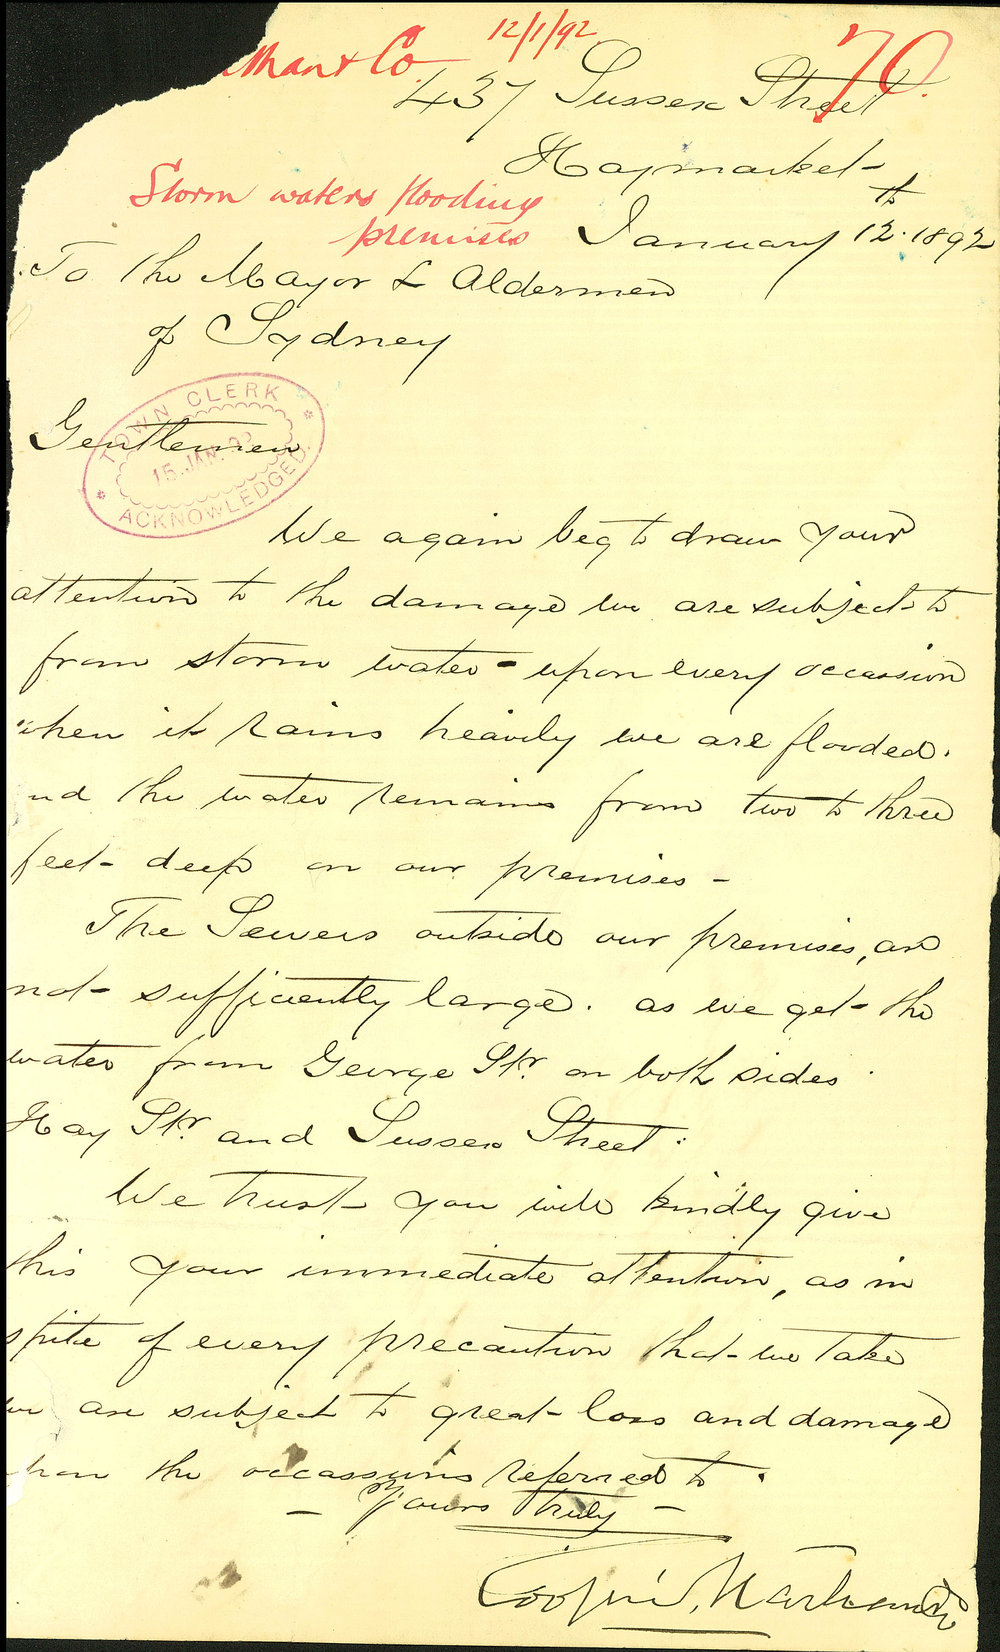 12/1/92
& Co.
70.
437 Sussex Street
Haymarket
Storm waters flooding
premises
January 12th 1892
To the Mayor & Aldermen
of Sydney
TOWN CLERK
15 JAN
ACKNOWLEDGED
Gentlemen
We again beg to draw your
attention to the damage we are subject to
from storm water - upon every occassion
when it rains heavily we are flooded.
and the water remains from two to three
feet deep on our premises -
The Sewers outside our premises, are
not sufficiently large. as we get the
water from George Str. on both sides.
Hay Str. and Sussex Street.
We trust you will kindly give
this your immediate attention, as in
spite of every precaution that we take
we are subject to great loss and damage
upon the occassions referred to.
- Yours truly -
Cooper